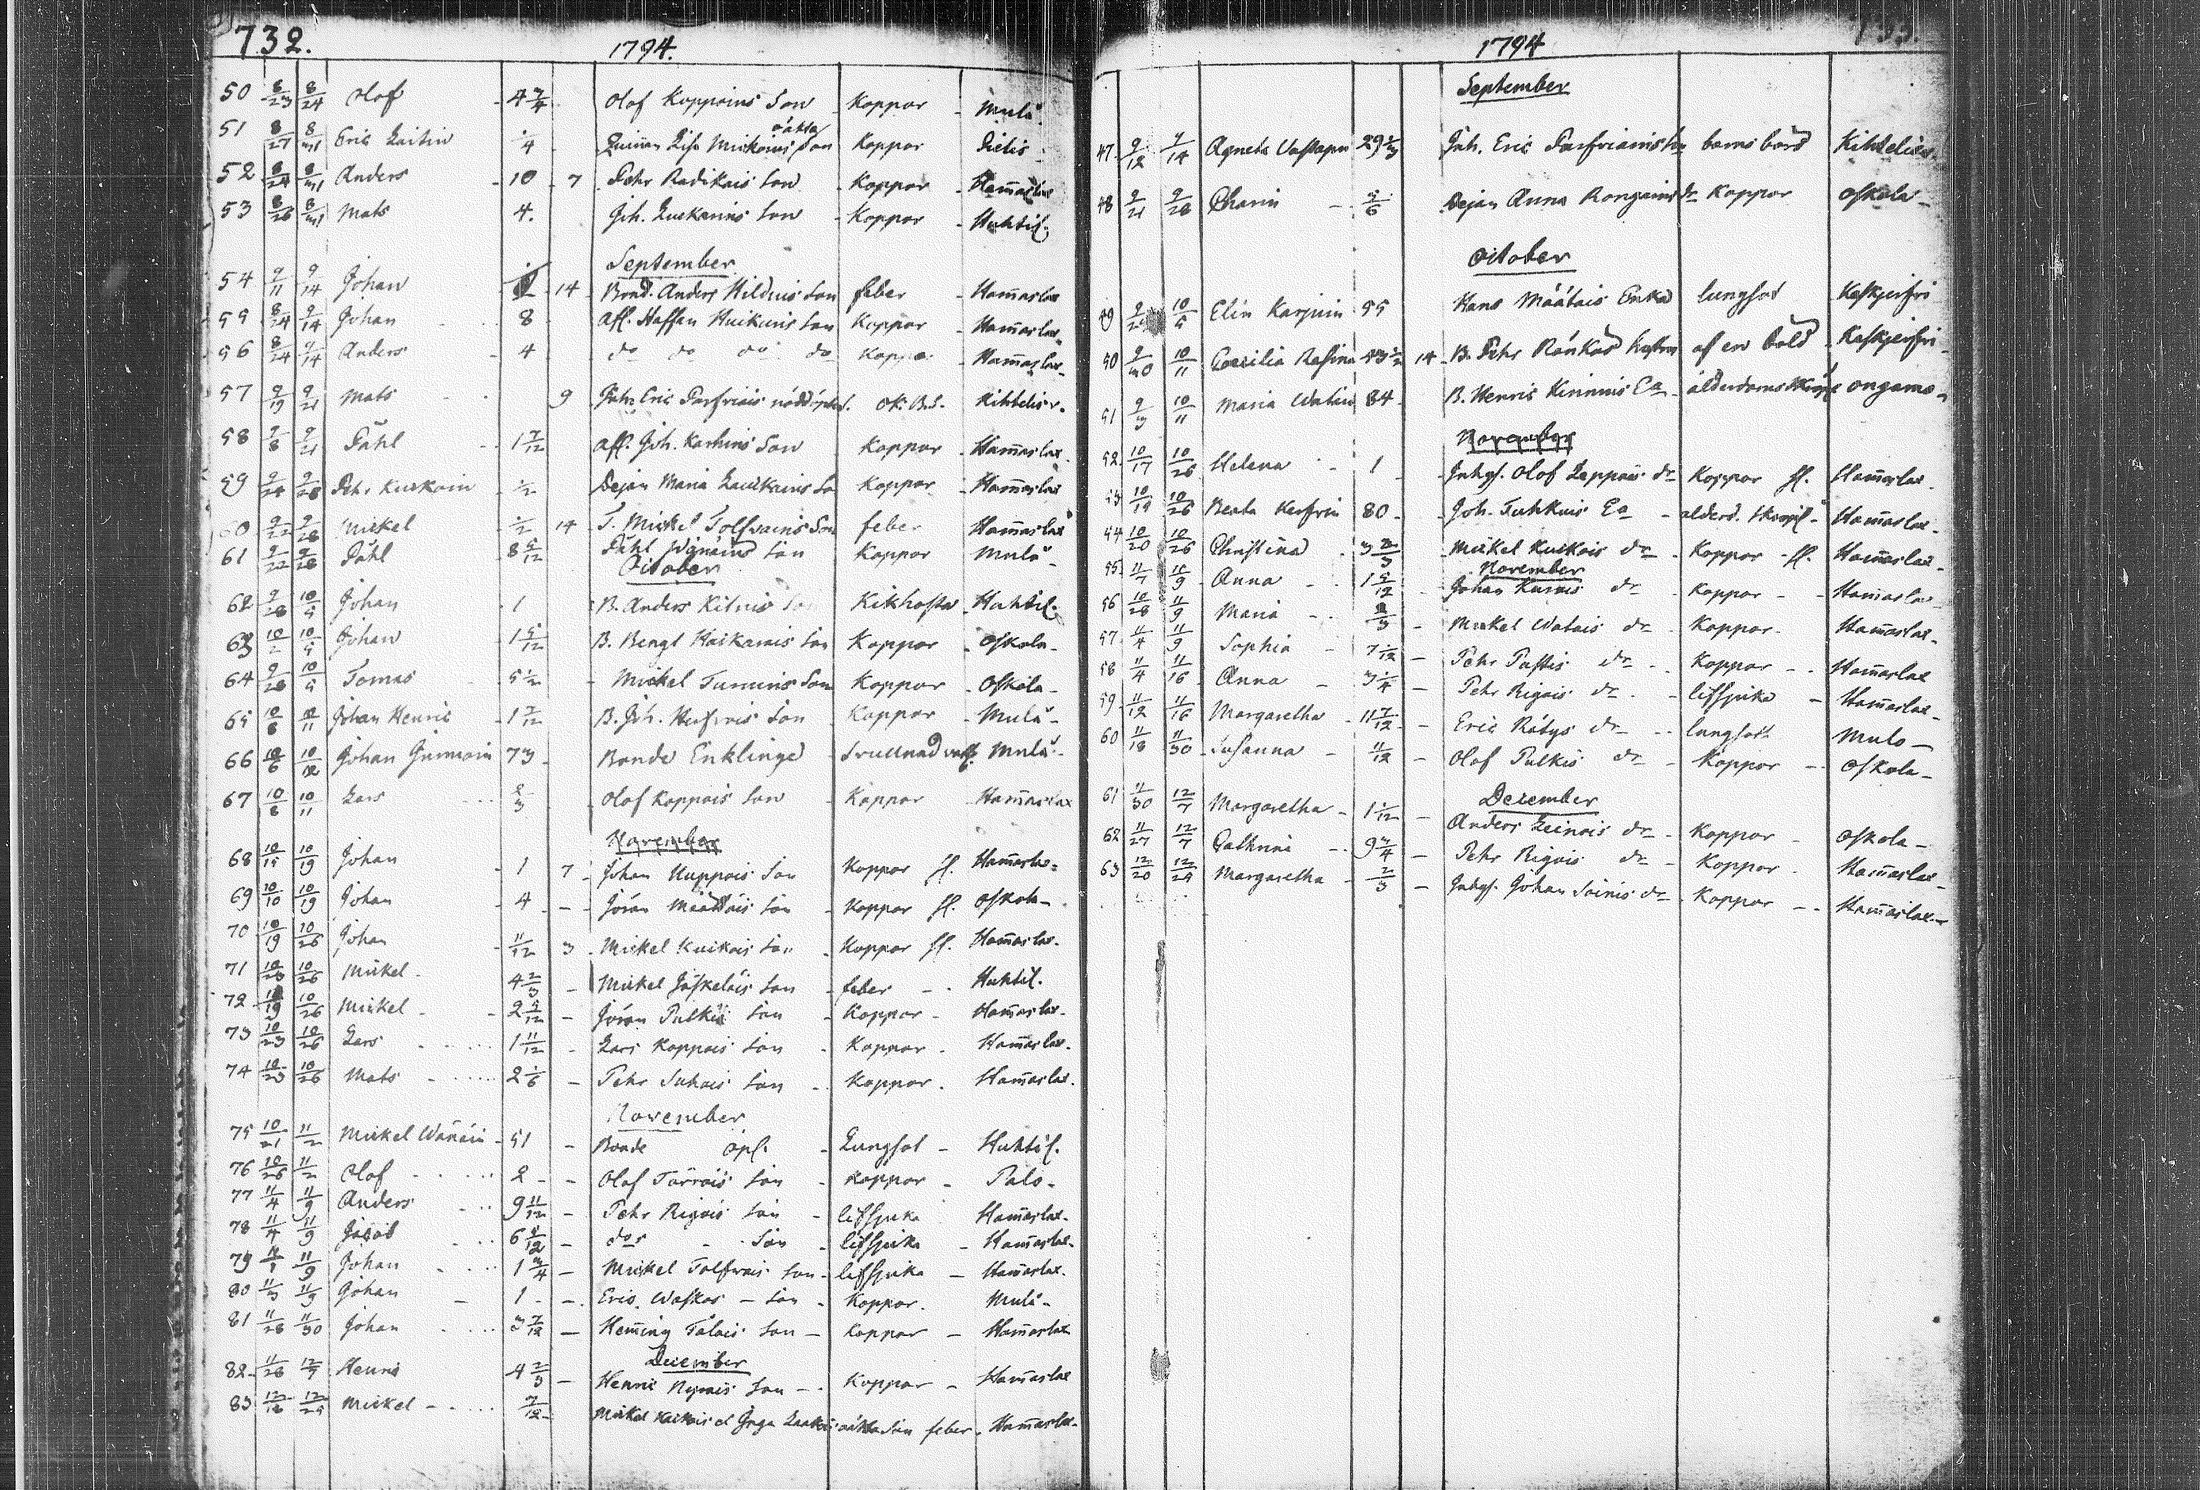 732.
1794.
50 8/23 8/24 Olof 4 3/4 Olof Koppoins Son Koppor Mulå
51 8/27 8/31 Eric Laitin 1/4 Lisa Mickoins oäkta Son Koppor Pielis
52 8/24 8/31 Anders 10 7 Pehr Radikais Son Koppor Ham̄aslax
53 8/26 8/31 Mats 4. Joh. Son Koppor Huhtil.
September
54 9/11 9/14 Johan 14 Bond. Anders Hilduis Son feber Ham̄aslax
55 8/24 9/14 Johan 8 Afl. Staffan Huikuris Son Koppor Ham̄aslax
56 8/24 9/14 Anders 4 do do do do Koppor Ham̄aslax
57 9/19 9/21 Mats 9 Joh. Eric Parfviais nöddöpt. ok. Kihtelisv.
58 9/8 9/21 Påhl 1 7/12 Afl. Joh. Karhins Son Koppor Ham̄aslax
59 9/24 9/28 Pehr Kurkoin 1/2 Pejan Maria Laurkains So Koppor Ham̄aslax
60 9/22 9/28 Mickel 1/2 14 T. Mickel Tolfvains Son feber Ham̄aslax
61 9/22 9/28 Påhl 8 5/12 Påhl Son Koppor Mulå
October
62 9/28 10/5 Johan 1 B. Anders Kiluis Son Kikhosta Huhtil.
63 10/2 10/5 Johan 1 5/12 B. Bengt Kaikarais Son Koppor Oskola
64 9/28 10/5 Tomas 5 1/2 Mickel Tururis Son Koppor Oskola
65 10/8 10/11 Johan Henric 1 7/12 B. Joh. Son Koppor Mulå
66 10/6 10/12 Johan Giminain 73 Bonde Enklinge Svullnad vatt. Mulå
67 10/8 10/11 Lars 2/3 Olof Koppois Son Koppor Ham̄aslax
November
68 10/15 10/19 Johan 1 7 Johan Huppois Son Koppor Ham̄aslax
69 10/10 10/19 Johan 4 Jöran Määttäis Son Koppor Oskola
70 10/19 10/26 Johan 11/12 3 Mickel Kuikais Son Koppor Ham̄aslax
71 10/20 10/26 Mickel 4 2/3 Mickel Jäskeläis Son feber Huhtil.
72 10/19 10/26 Mickel 2 5/12 Jöran Pulkis Son Koppor Ham̄aslax
73 10/23 10/26 Lars 1 11/12 Lars Koppois Son Koppor Ham̄aslax
74 10/23 10/26 Mats 2 1/6 Pehr Juhais Son Koppor Ham̄aslax
November
75 10/21 11/2 Mickel Wänäin 51 Bonde Lungsot Huhtil.
76 10/26 11/2 Olof 2 Olof Törröis Son Koppor Palo
77 11/4 11/9 Anders 9 11/12 Pehr Rigois Son lifsjuka Ham̄aslax
78 11/4 11/9 Jacob 6 5/12 dos Son lifsjuka Ham̄aslax
79 11/1 11/9 Johan 1 3/4 Mickel Tolfvais Son lifsjuka Ham̄aslax
80 11/3 11/9 Johan 1 Eric Waskos Son Koppor Mulå
81 11/28 11/30 Johan 3 7/12 Hem̄ing Tålais Son Koppor Ham̄aslax
December
82 11/28 12/7 Henric 4 2/3 Henric Nyrois Son Koppor Ham̄aslax
83 12/18 12/25 Mickel 7/12 Mickel Kaikois oäkta Son feber Ham̄aslax
1794
September
47 9/12 9/14 Agneta Vastapu 29 1/3 Joh. Eric Parfviains barnsbörd Kihtelisv.
48 9/21 9/28 Charin 5/6 Pejan Anna Rongains dr Koppor Oskola
October
49 10/5 Elin Karjuin 55 Hans Määtäis Enka lungsot Keskjerfvi
50 9/30 10/11 Cecilia Rasina 43 1/2 14 B. Pehr Ränkäs hustru af en böld Keskjerfvi
51 9/3 10/11 Maria Watain 84 B. Henric Kinnuis Ea ålderdoms Skröpl. Ongamo
November
52 10/17 10/26 Helena 1 Inhys. Olof Lappais dr Koppor Ham̄aslax
53 10/19 10/26 Beata Karfvin 80 Joh. Tuhkuis Ea ålderd. skröpl. Ham̄aslax
54 10/20 10/26 Christina 3 2/3 Mickel Kuikais dr Koppor Ham̄aslax
November
55 11/7 11/9 Anna 1 5/12 Johan Kuruis dr Koppor Ham̄aslax
56 10/28 11/9 Maria 2/3 Mickel Watais dr Koppor Ham̄aslax
57 11/4 11/9 Sophia 7 1/12 Pehr Pustis dr Koppor Ham̄aslax
58 11/4 11/16 Anna 3 1/4 Pehr Rigois dr lifsjuka Ham̄aslax
59 11/12 11/16 Margaretha 11 7/12 Eric Rätys dr lungsot Mulo
60 11/18 11/30 Susanna 11/12 Olof Pulkis dr Koppor Oskola
December
61 11/30 12/7 Margaretha 1 1/12 Anders Leinois dr Koppor Oskola
62 11/27 12/7 Cathrina 9 3/4 Pehr Rigois dr Koppor Ham̄aslax
63 12/20 12/25 Margaretha 2/3 Inhys. Johan Soinis dr Koppor Ham̄aslax